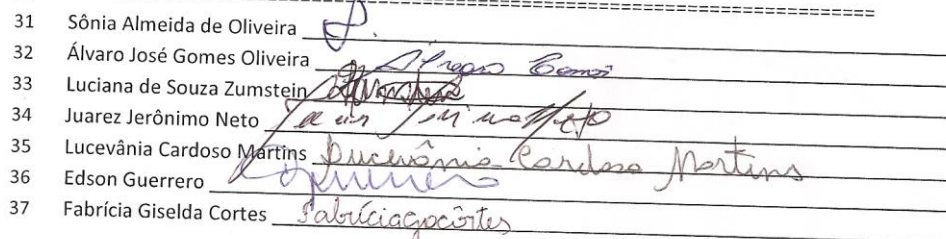 31 Sônia Almeida de Oliveira
32 Álvaro José Gomes Oliveira
33 Luciana de Souza Zumstein
34 Juarez Jerônimo Neto
35 Lucevânia Cardoso Martins Lucevânia Cardoso Martins
36 Edson Guerrero
37 Fabrícia Giselda Cortes